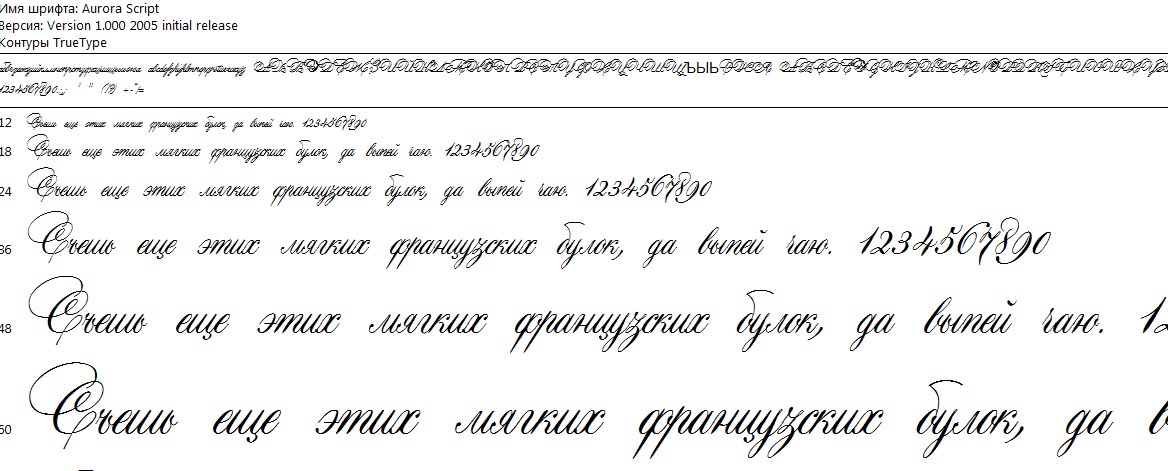 Имя шрифта: Aurora Script
Версия: Version 1.000 2005 initial release
Контуры TrueType
ЪЫЬ
1234567890.:,; ' " (!?) +-*/=
12 Съешь еще этих мягких французских булок, да выпей чаю. 1234567890
18 Съешь еще этих мягких французских булок, да выпей чаю. 1234567890
24 Съешь еще этих мягких французских булок, да выпей чаю. 1234567890
36 Съешь еще этих мягких французских булок, да выпей чаю. 1234567890
48 Съешь еще этих мягких французских булок, да выпей чаю. 12
60 Съешь еще этих мягких французских булок, да в